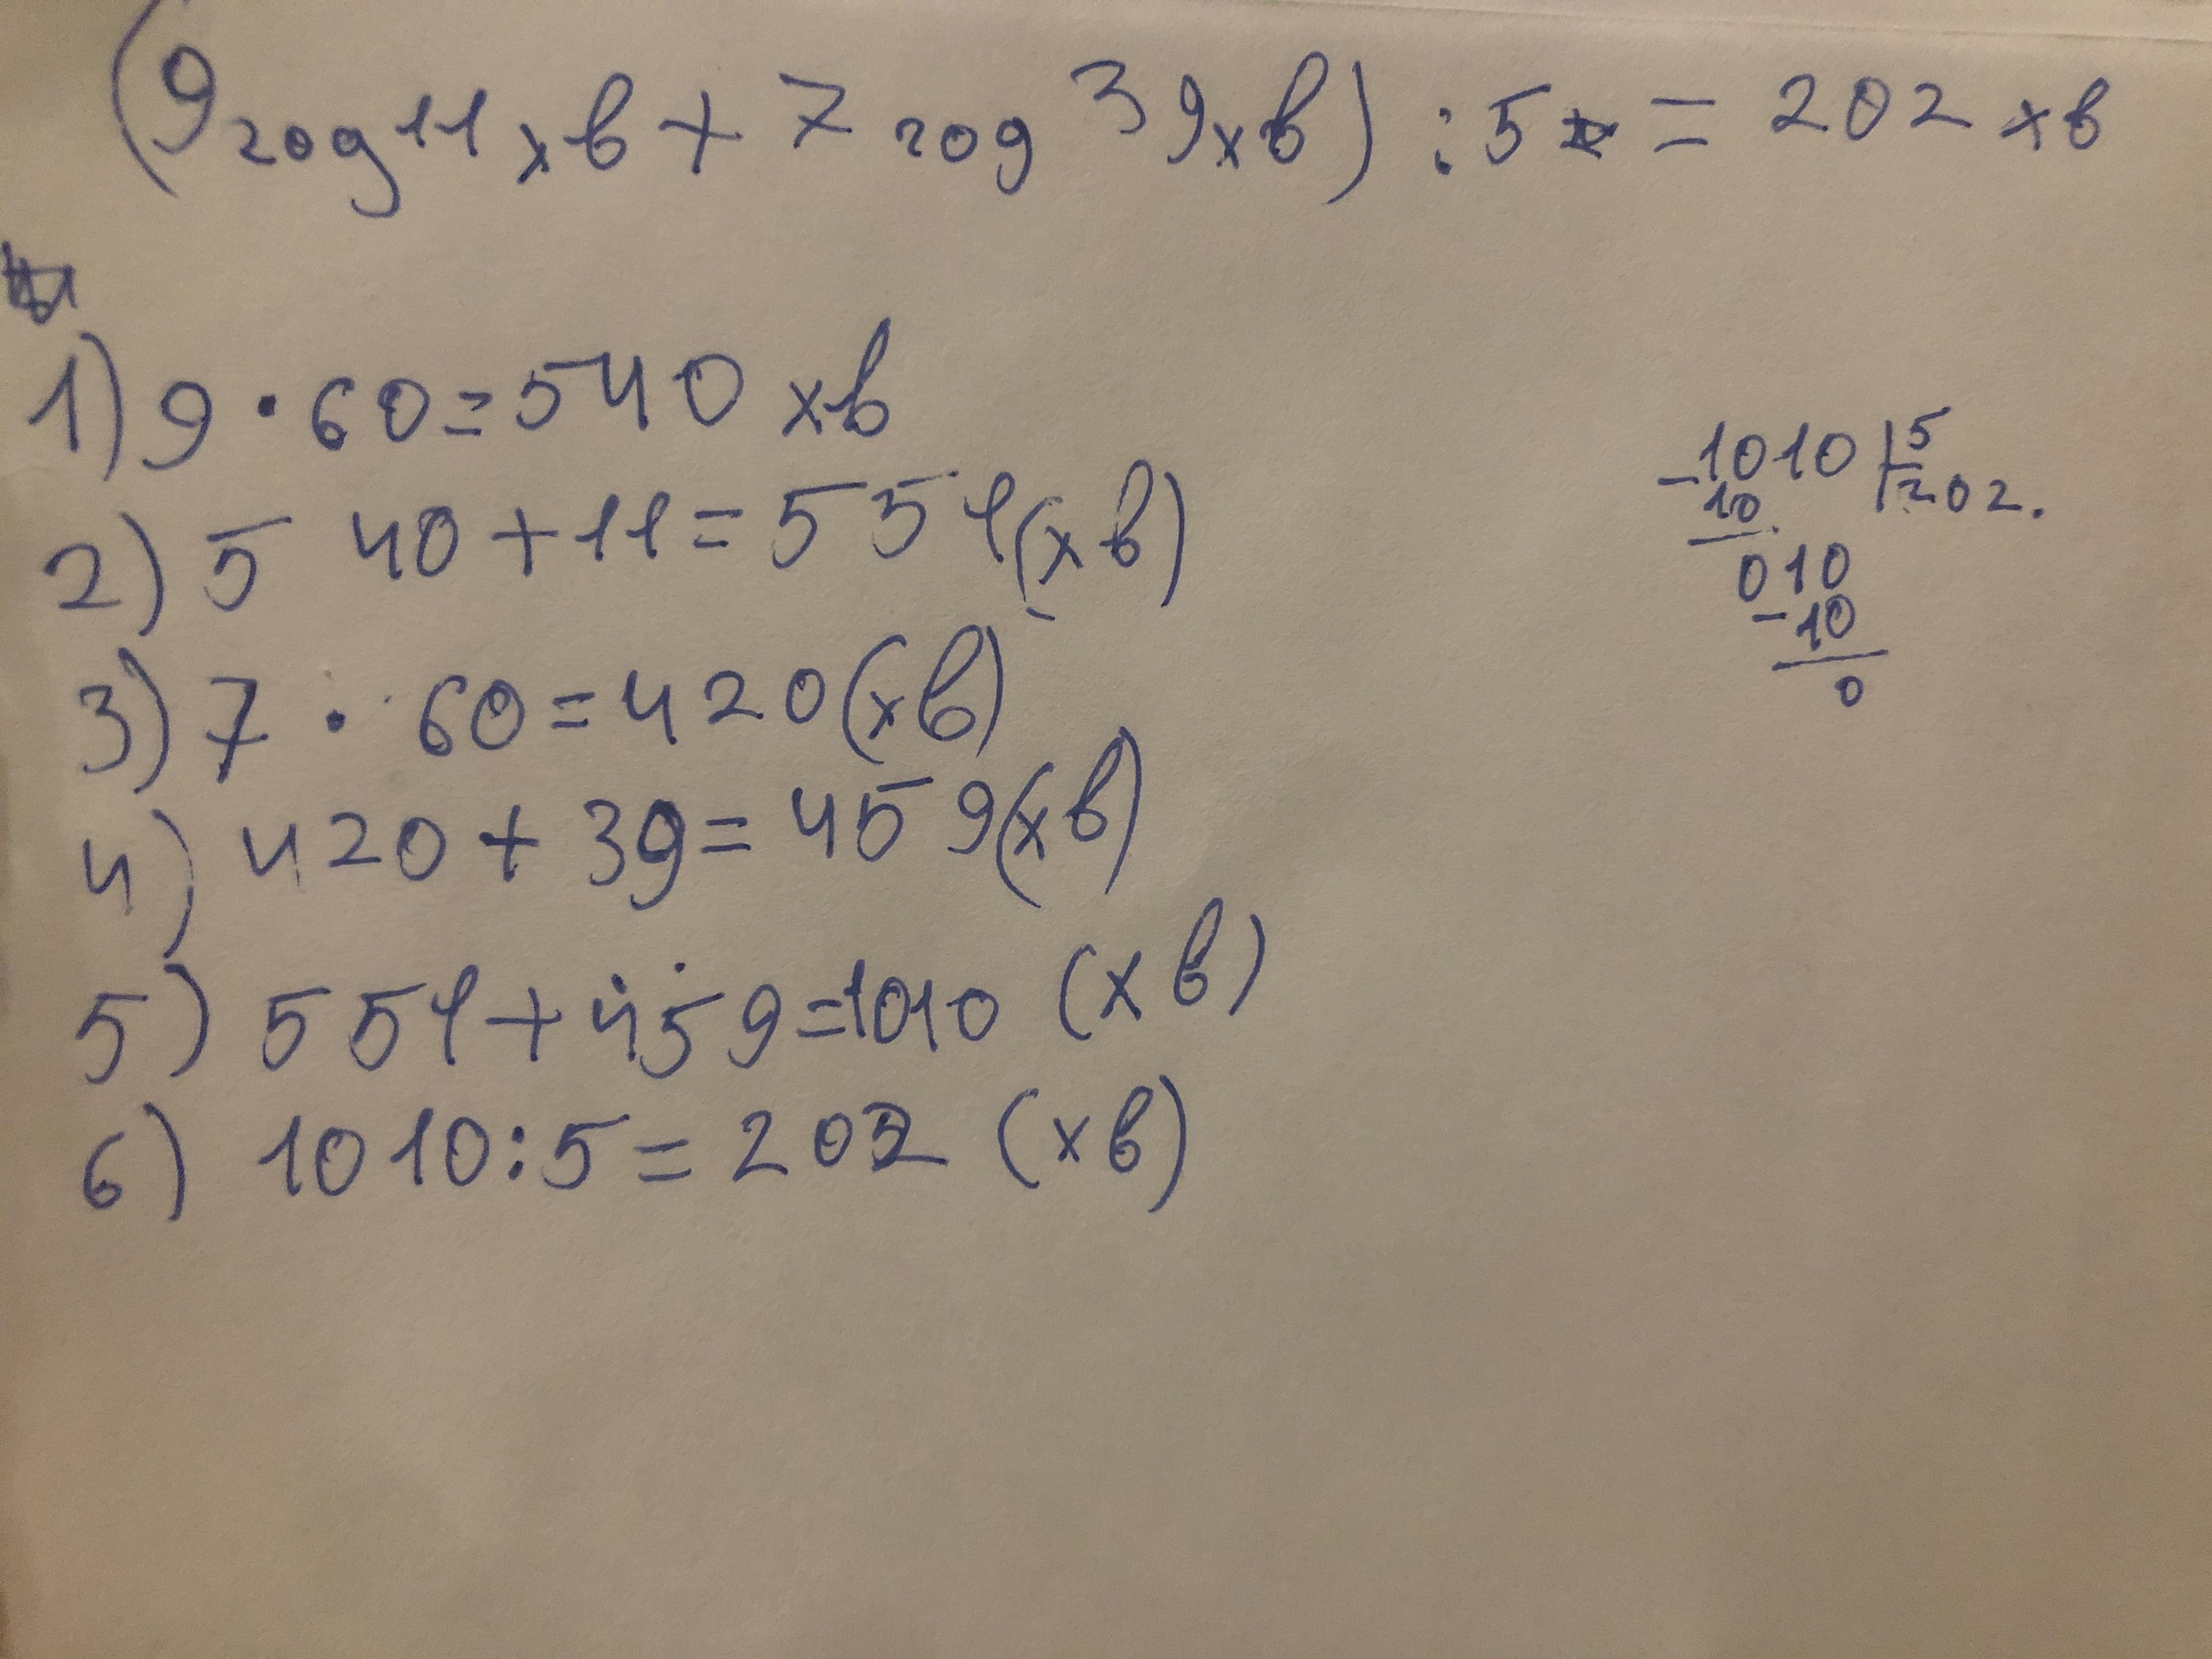 (9 год 11 хв + 7 год 39 хв) : 5 = 202 хв
1) 9 · 60 = 540 хв
2) 540 + 11 = 551 (хв)
3) 7 · 60 = 420 (хв)
4) 420 + 39 = 459 (хв)
5) 551 + 459 = 1010 (хв)
6) 1010 : 5 = 202 (хв)
- 1010 | 5
10 202.
010
- 10
0